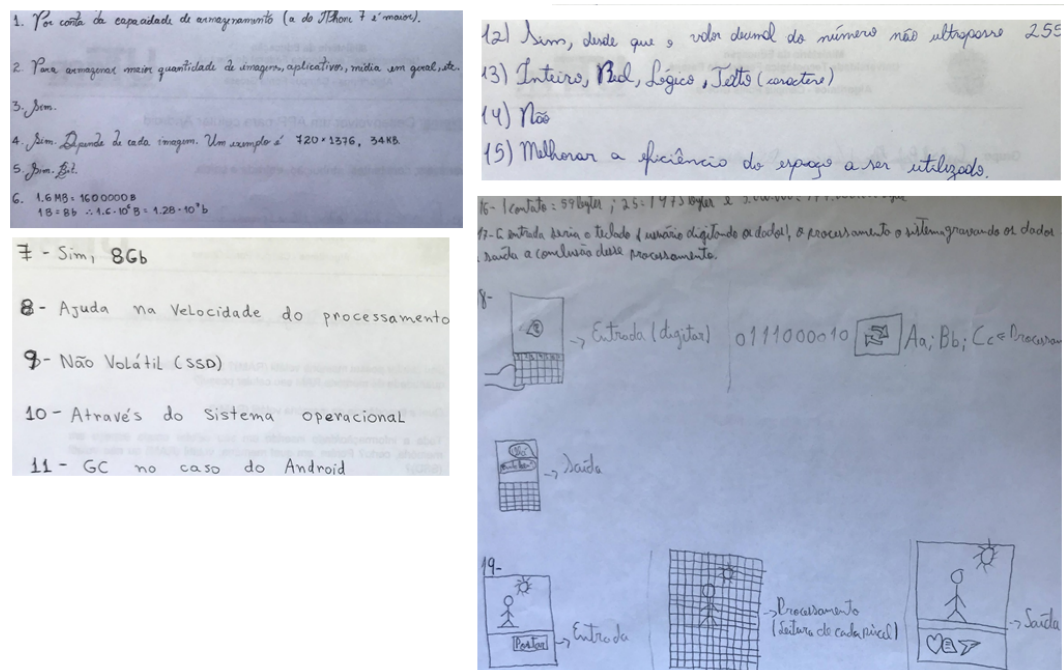 1. Por conta da capacidade de armazenamento (a do IPhone 7 é maior).
2. Para armazenar maior quantidade de imagens, aplicativos, mídia em geral, etc.
3. Sim.
4. Sim. Depende de cada imagem. Um exemplo é 720 × 1376, 34KB.
5. Sim. Bit.
6. 1.6 MB = 1600000 B
1B = 8b ∴ 1.6 · 10⁶ B = 1.28 · 10⁷ b
7 - Sim, 8Gb
8 - Ajuda na velocidade do processamento
9 - Não Volátil (SSD)
10 - Através do sistema operacional
11 - GC no caso do Android
12) Sim, desde que o valor decimal do número não ultrapasse 255
13) Inteiro, Real, Lógico, Texto (caractere)
14) Não
15) Melhorar a eficiência do espaço a ser utilizado.
16- 1 contato = 59 bytes ; 25 = 1475 bytes e
17- A entrada seria o teclado (usuário digitando os dados), o processamento o sistema gravando os dados
saída a conclusão desse processamento.
8-
→ Entrada (digitar) 0111000010 Aa; Bb; Cc
→ Saída
19-
Postar → Entrada
→ Processamento
(leitura de cada pixel)
→ Saída